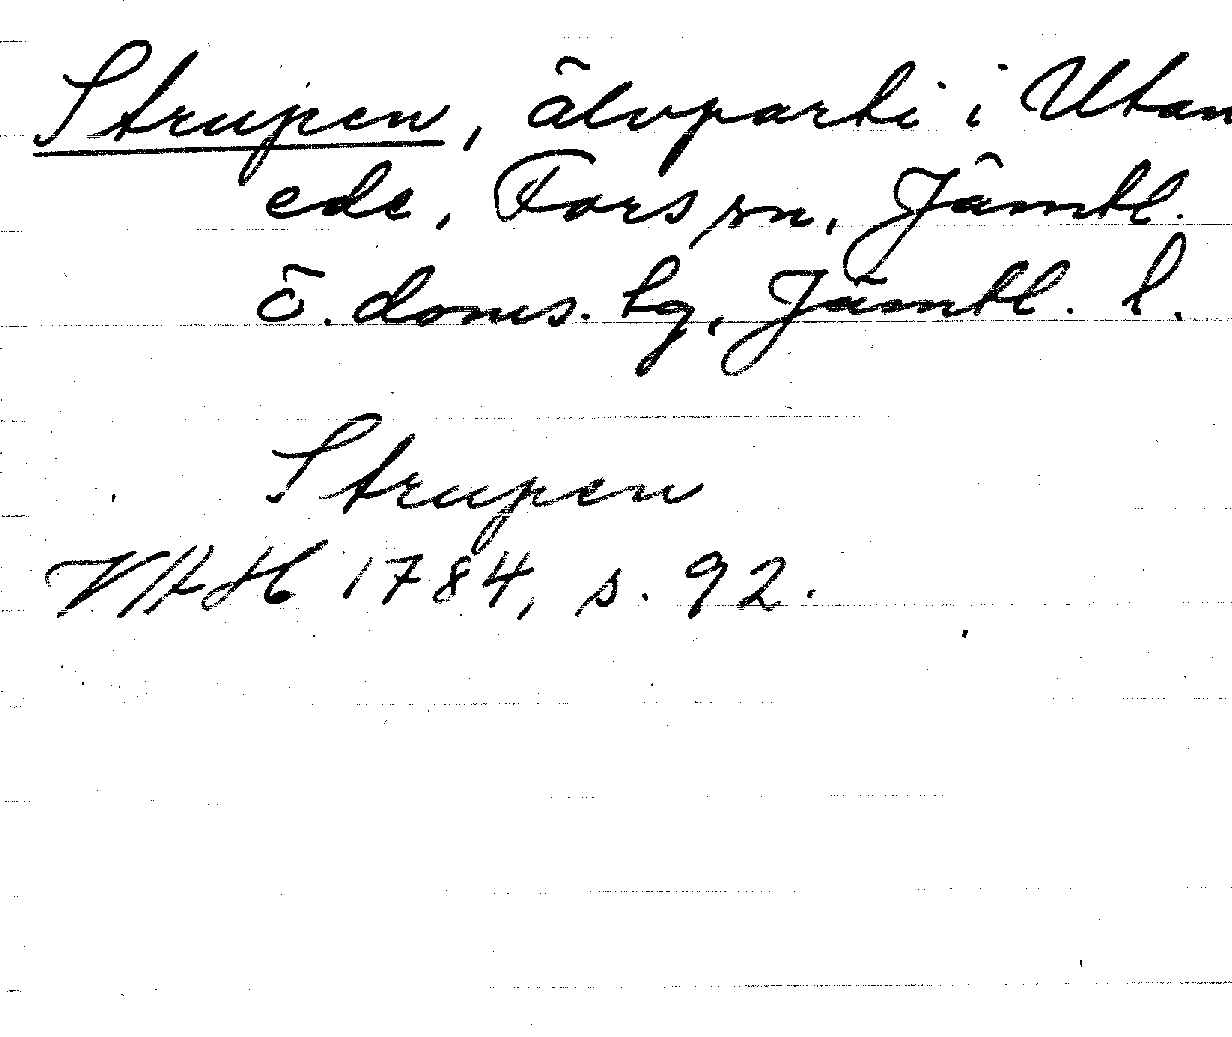 Strupen, älvparti i Utan
ede, Fors sn, Jämtl.
ö. doms. tg, Jämtl. l.
Strupen
VAH 1784, s. 92.